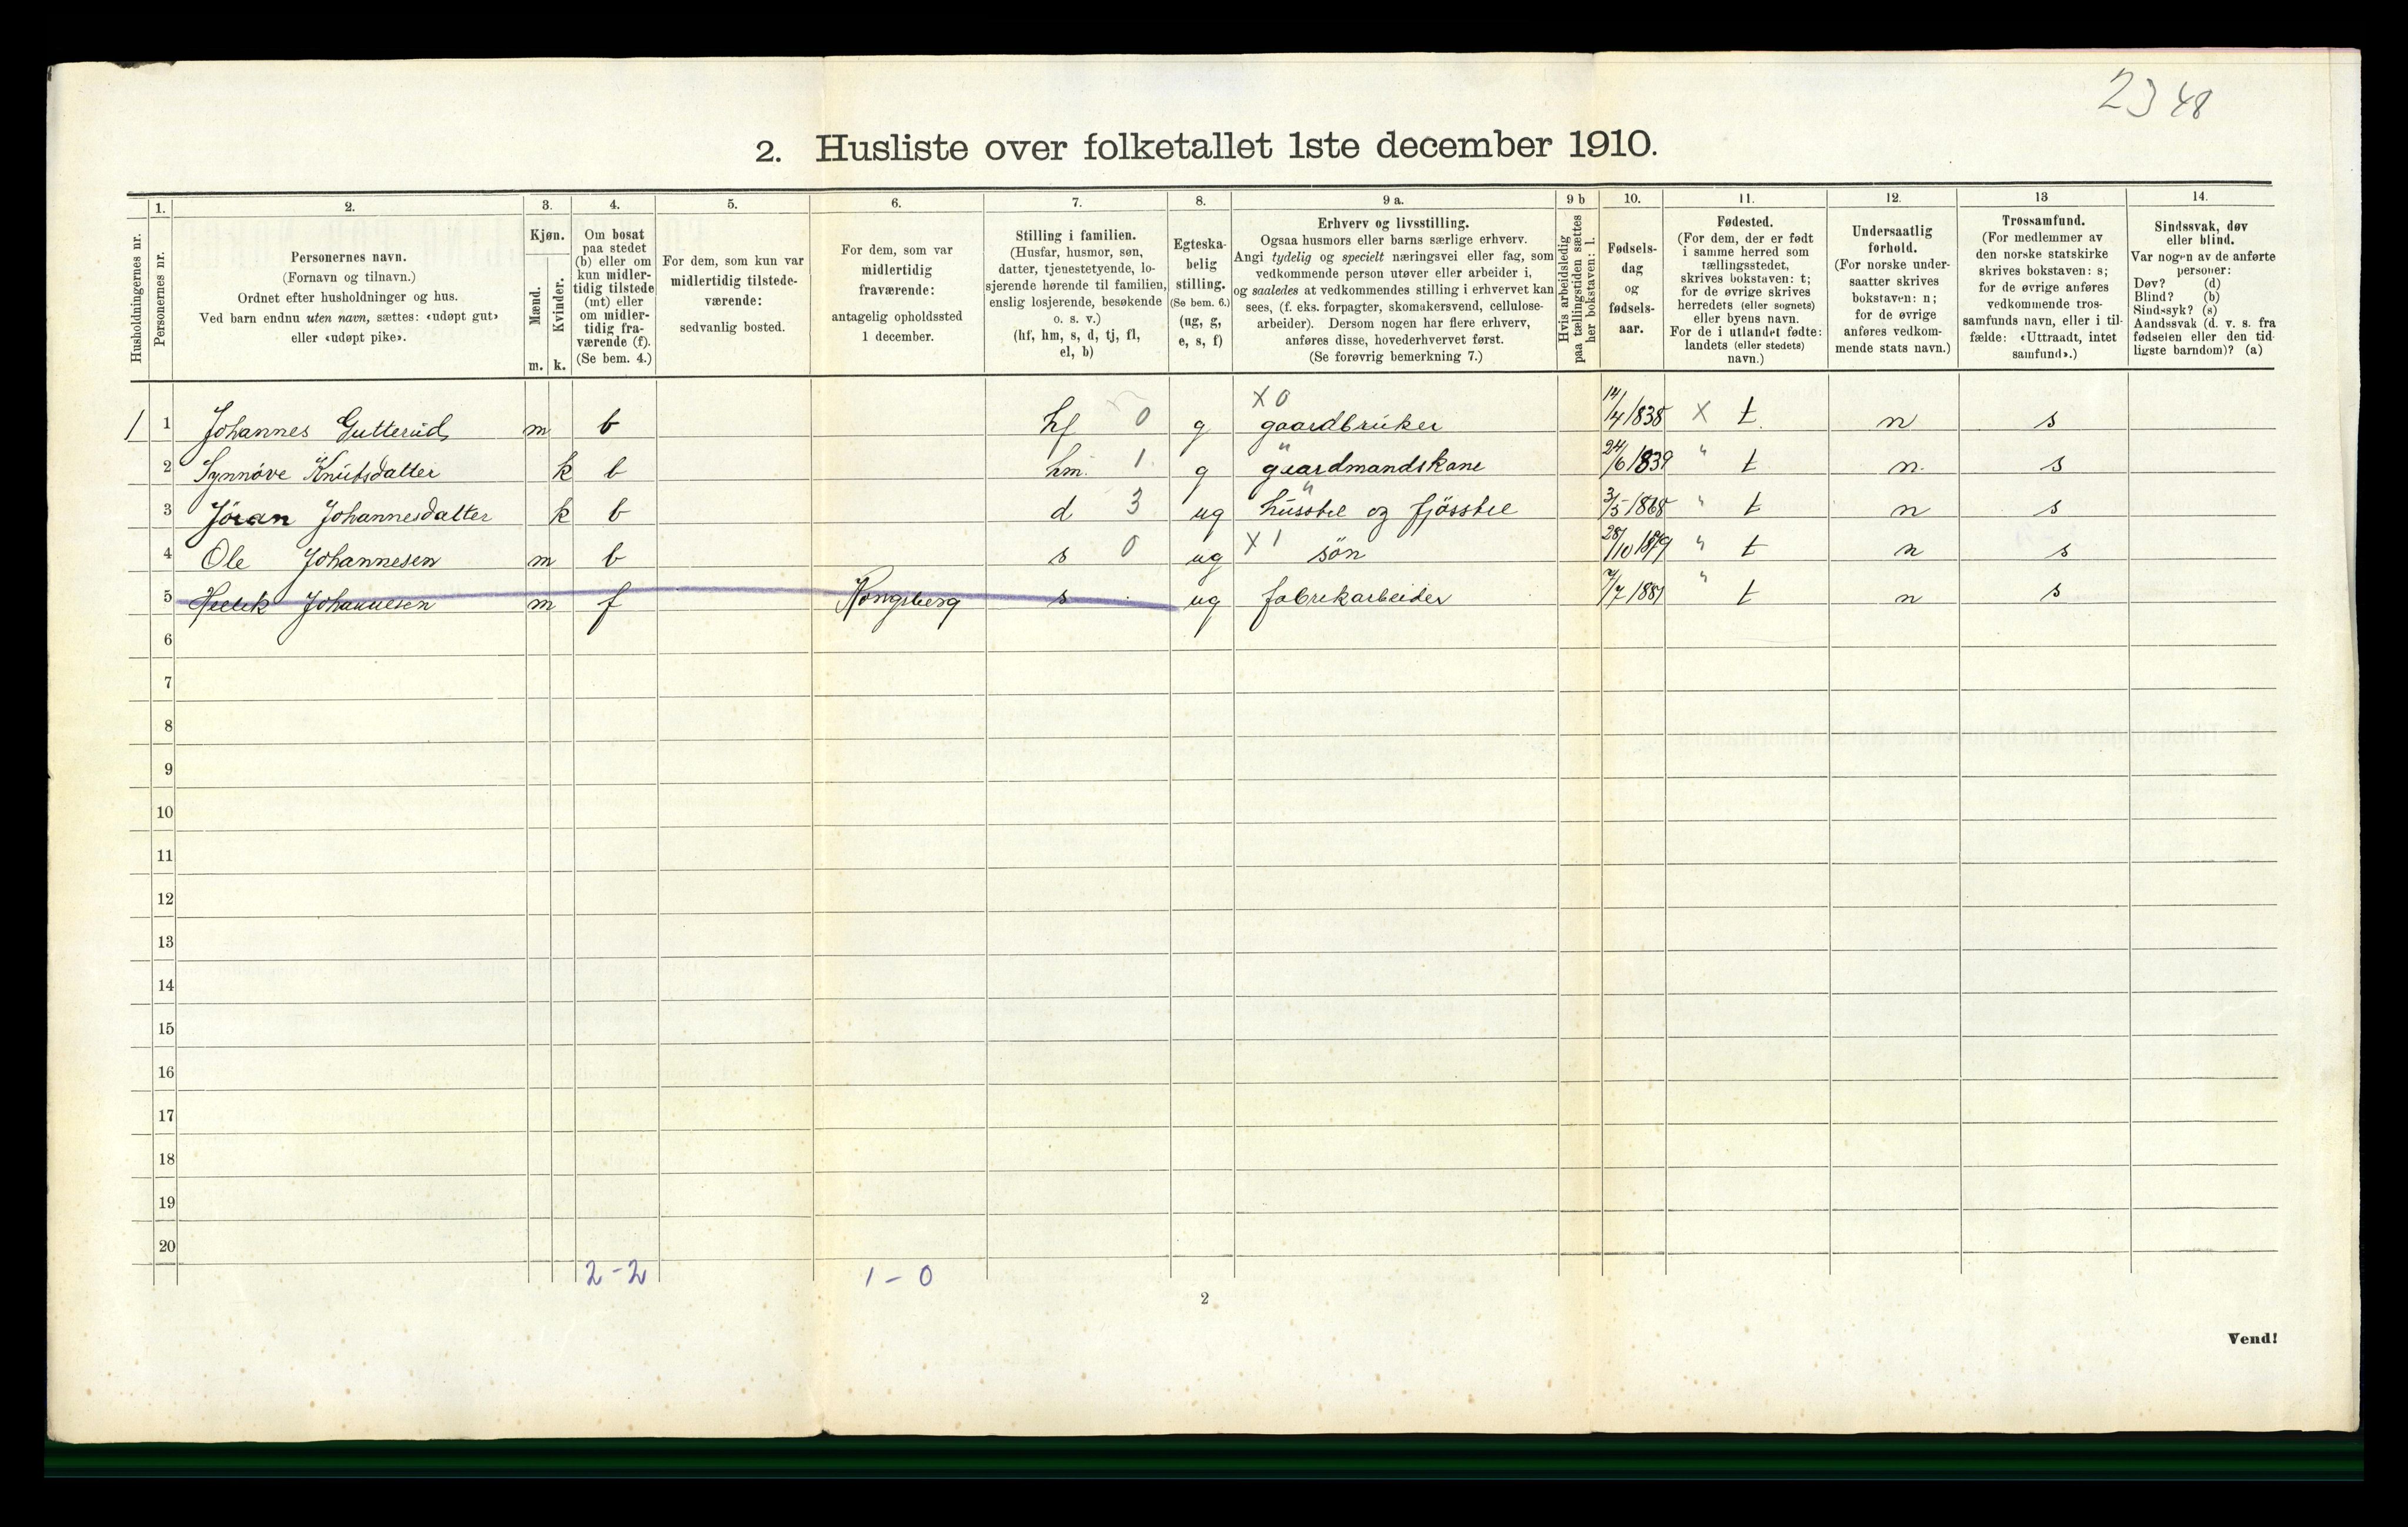 23 48
2. Husliste over folketallet 1ste december 1910.
Husholdningernes nr.
1. Personernes nr.
2. Personernes navn. (Fornavn og tilnavn.) Ordnet efter husholdninger og hus. Ved barn endnu uten navn, sættes: «udøpt gut» eller «udøpt pike».
3. Kjøn. Mænd. m. Kvinder. k.
4. Om bosat paa stedet (b) eller om kun midlertidig tilstede (mt) eller om midlertidig fraværende (f). (Se bem. 4.)
5. For dem, som kun var midlertidig tilstedeværende: sedvanlig bosted.
6. For dem, som var midlertidig fraværende: antagelig opholdssted 1 december.
7. Stilling i familien. (Husfar, husmor, søn, datter, tjenestetyende, losjerende hørende til familien, enslig losjerende, besøkende o. s. v.) (hf, hm, s, d, tj, fl, el, b)
8. Egteskabelig stilling. (Se bem. 6.) (ug, g, e, s, f)
9 a. Erhverv og livsstilling. Ogsaa husmors eller barns særlige erhverv. Angi tydelig og specielt næringsvei eller fag, som vedkommende person utøver eller arbeider i, og saaledes at vedkommendes stilling i erhvervet kan sees, (f. eks. forpagter, skomakersvend, cellulosearbeider). Dersom nogen har flere erhverv, anføres disse, hovederhvervet først. (Se forøvrig bemerkning 7.)
9 b Hvis arbeidsledig paa tællingstiden sættes her bokstaven: l.
10. Fødselsdag og fødselsaar.
11. Fødested. (For dem, der er født i samme herred som tællingsstedet, skrives bokstaven: t; for de øvrige skrives herredets (eller sognets) eller byens navn. For de i utlandet fødte: landets (eller stedets) navn.)
12. Undersaatlig forhold. (For norske undersaatter skrives bokstaven: n; for de øvrige anføres vedkommende stats navn.)
13 Trossamfund. (For medlemmer av den norske statskirke skrives bokstaven: s; for de øvrige anføres vedkommende trossamfunds navn, eller i tilfælde: «Uttraadt, intet samfund».)
14. Sindssvak, døv eller blind. Var nogen av de anførte personer: Døv? (d) Blind? (b) Sindssyk? (s) Aandssvak (d. v. s. fra fødselen eller den tidligste barndom)? (a)
X 0
1 1 Johannes Gutterud m b hf 0 g gaardbruker 14/4 1838 X t. n s
2 Synnöve Knutsdatter k b hm. 1 g " gaardmandskone 24/6 1839 " t n. s
3 Jöran Johannesdatter k b d 3 ug " husstel og fjösstel 3/5 1868 " t n s
4 Ole Johannesen m b s 0 ug X 1 sön 28/10 1879 " t n s
5 Johannesen m f Kongsberg s ug fabrikarbeider 7/7 1881 " t n s
6
7
8
9
10
11
12
13
14
15
16
17
18
19
20
2-2 1-0
2
Vend!